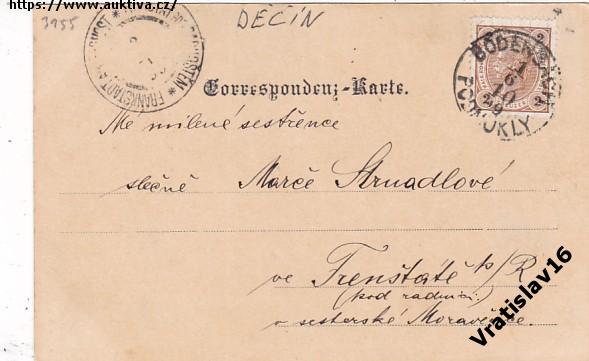 https://www.auktiva.cz/
3955
DĚČÍN
FRANKSTADT
BODENBACH
PODMOKLY
2
2 2
Correspondenz-Karte.
Mé milené sestřence
slečně Marče Strnadlové
ve Frenštátě p/R
(pod radnicí)
o sesterské Moravěnce
Vratislav16